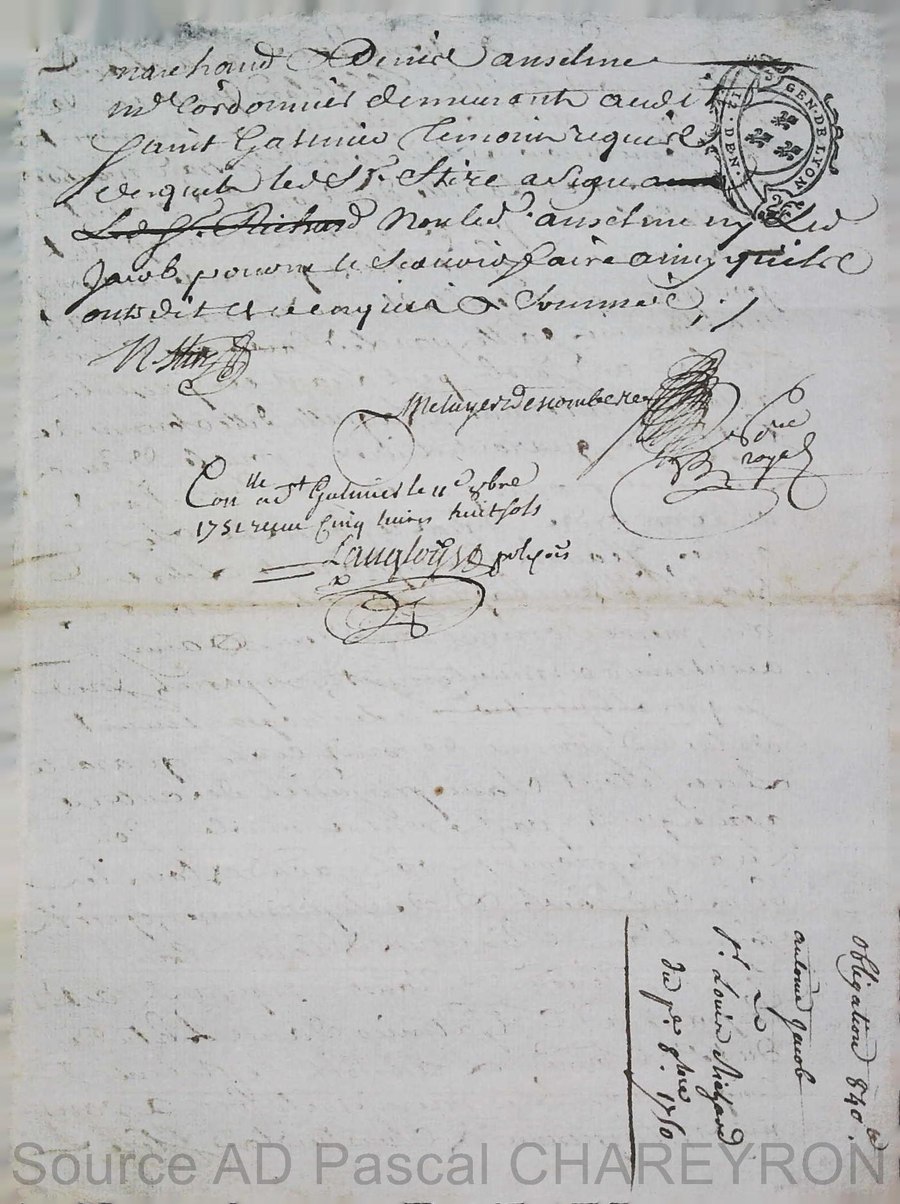 marchand & Denis anselme
md Cordonnier demeurants audit
Saint Galmier temoins requis
desquels led Sr. Stire a signé
Led Sr. Richard Non led anselme ny led
Jacob pour ne le scavoir faire ainsy quils
onts dit et de ce enquis & Sommés
GEN. DE LYON
DEN.
N. Stire
royal
Conlle a St Galmier le 11e 8bre
1751 reçu Cinq livres huit sols
Langlois
obligation 840
antoine Jacob
Sr. Louis Richard
du pr. 8bre 1750
Source AD Pascal CHAREYRON